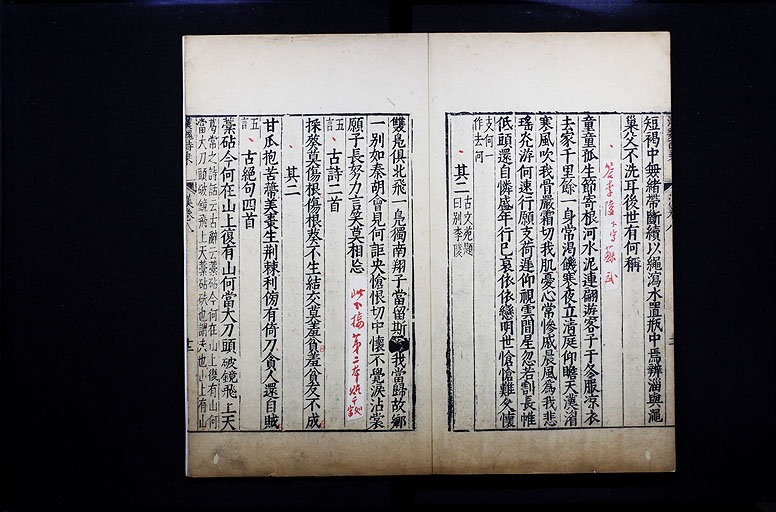 短褐中無緒帶斷續以繩瀉水置瓶中焉辨淄與澠
巢父不洗耳後世有何稱
答李陵
童童孤生節寄根河水泥連翩遊客子于冬服凉衣
去家千里餘一身常渴饑寒夜立清庭仰瞻天漢湄
寒風吹我骨嚴霜切我肌憂心常慘戚晨風為我悲
瑤光游何速行願支荷遲仰視雲間星忽若割長帷
低頭還自憐盛年行已衰依依戀明世愴愴難久懷
支何一
作去何
其二
古文苑題
曰別李陵
雙鳧俱北飛一鳧獨南翔子當留斯館我當歸故鄉
一別如秦胡會見何詎央愴恨切中懷不覺淚沾裳
願子長努力言笑莫相忘
五言
古詩二首
採葵莫傷根傷根葵不生結交莫羞貧羞貧友不成
其二
甘瓜抱苦蒂美棗生荆棘利傍有倚刀貪人還自賊
五言
古絕句四首
藁砧今何在山上復有山何當大刀頭破鏡飛上天
葛常之詩話云古辭云藁砧今何在山上復有山何
當大刀頭破鏡飛上天藁砧砆也謂夫也山上有山